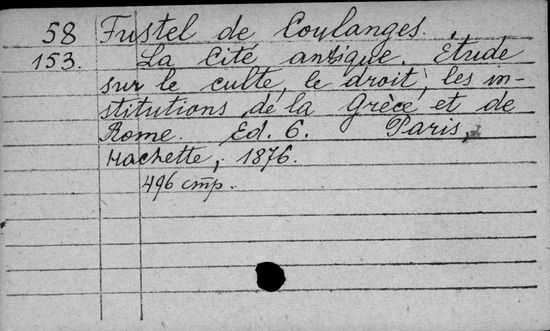 58 Fustel de Coulanges.
153. La Cité antique. Étude
sur le culte, le droit, les in-
stitutions de la Grèce et de
Rome. Ed. 6. Paris,
Hachette, 1876.
496 стр.